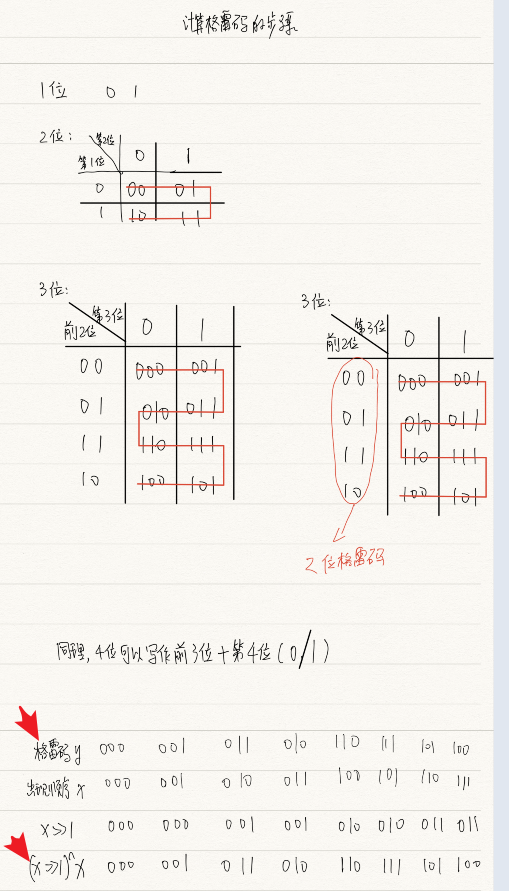 计算格雷码的步骤
1位 0 1
2位:
第2位 0 1
第1位
0 00 01
1 10 11
3位:
第3位 0 1
前2位
00 000 001
01 010 011
11 110 111
10 100 101
3位:
第3位 0 1
前2位
00 000 001
01 010 011
11 110 111
10 100 101
2位格雷码
同理,4位可以写作前3位+第4位(0/1)
格雷码y 000 001 011 010 110 111 101 100
出现顺序x 000 001 010 011 100 101 110 111
x>>1 000 000 001 001 010 010 011 011
(x>>1)^x 000 001 011 010 110 111 101 100